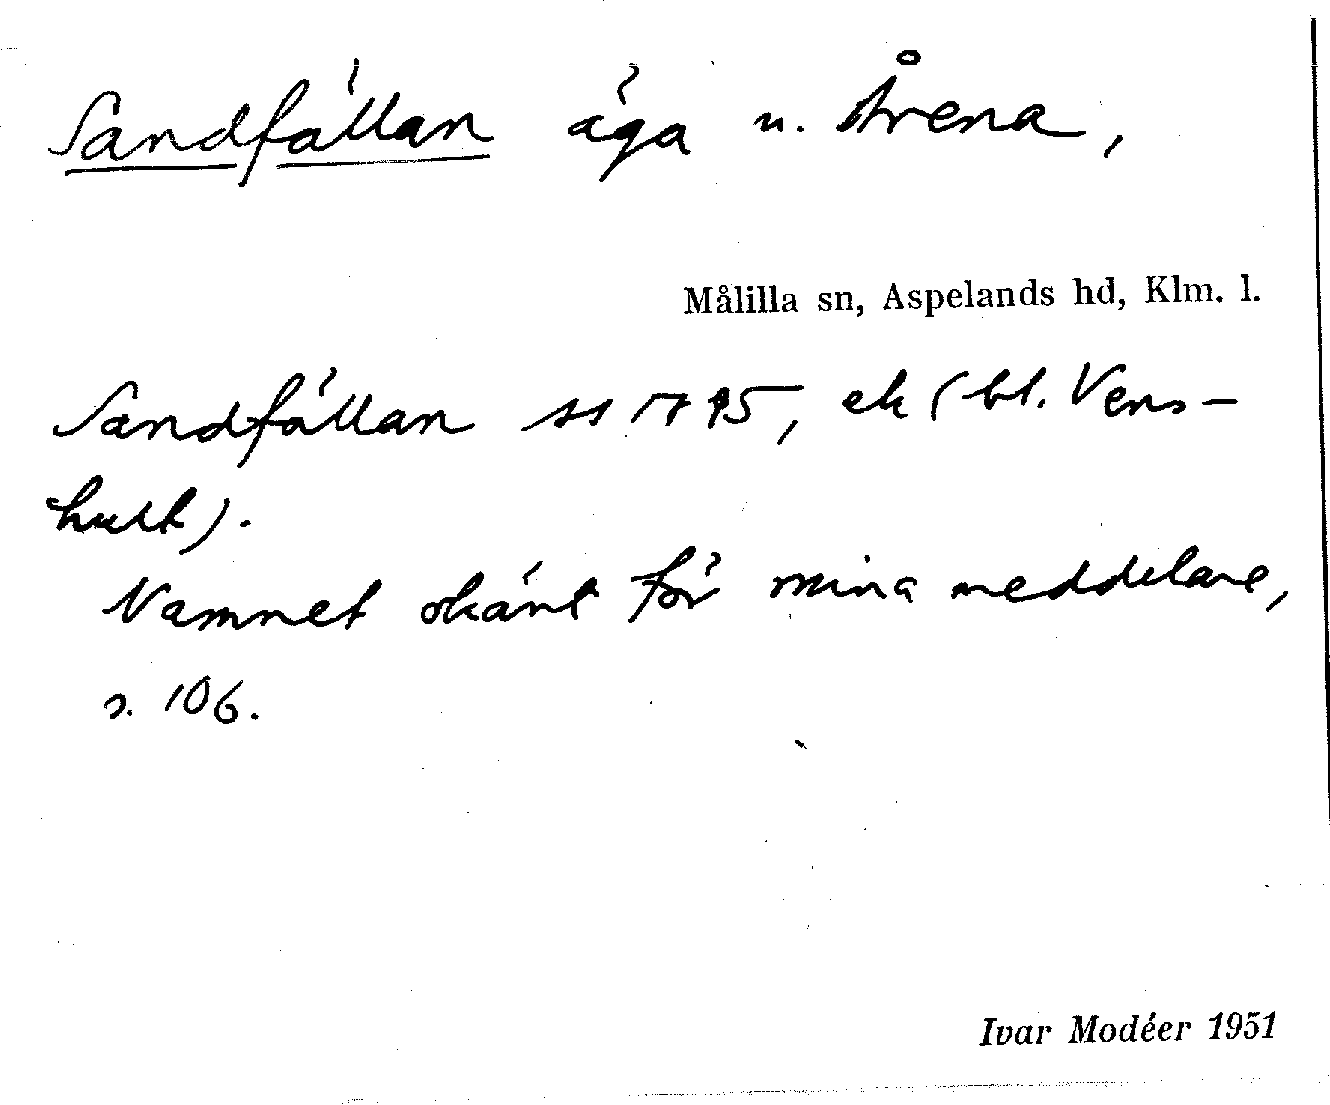 Sandfällan äga u. Årena,
Målilla sn, Aspelands hd, Klm. l.
Sandfällan ss 1795, ek (bl. Vens-
hult).
Namnet okänt för mina meddelare,
s. 106.
Ivar Modéer 1951